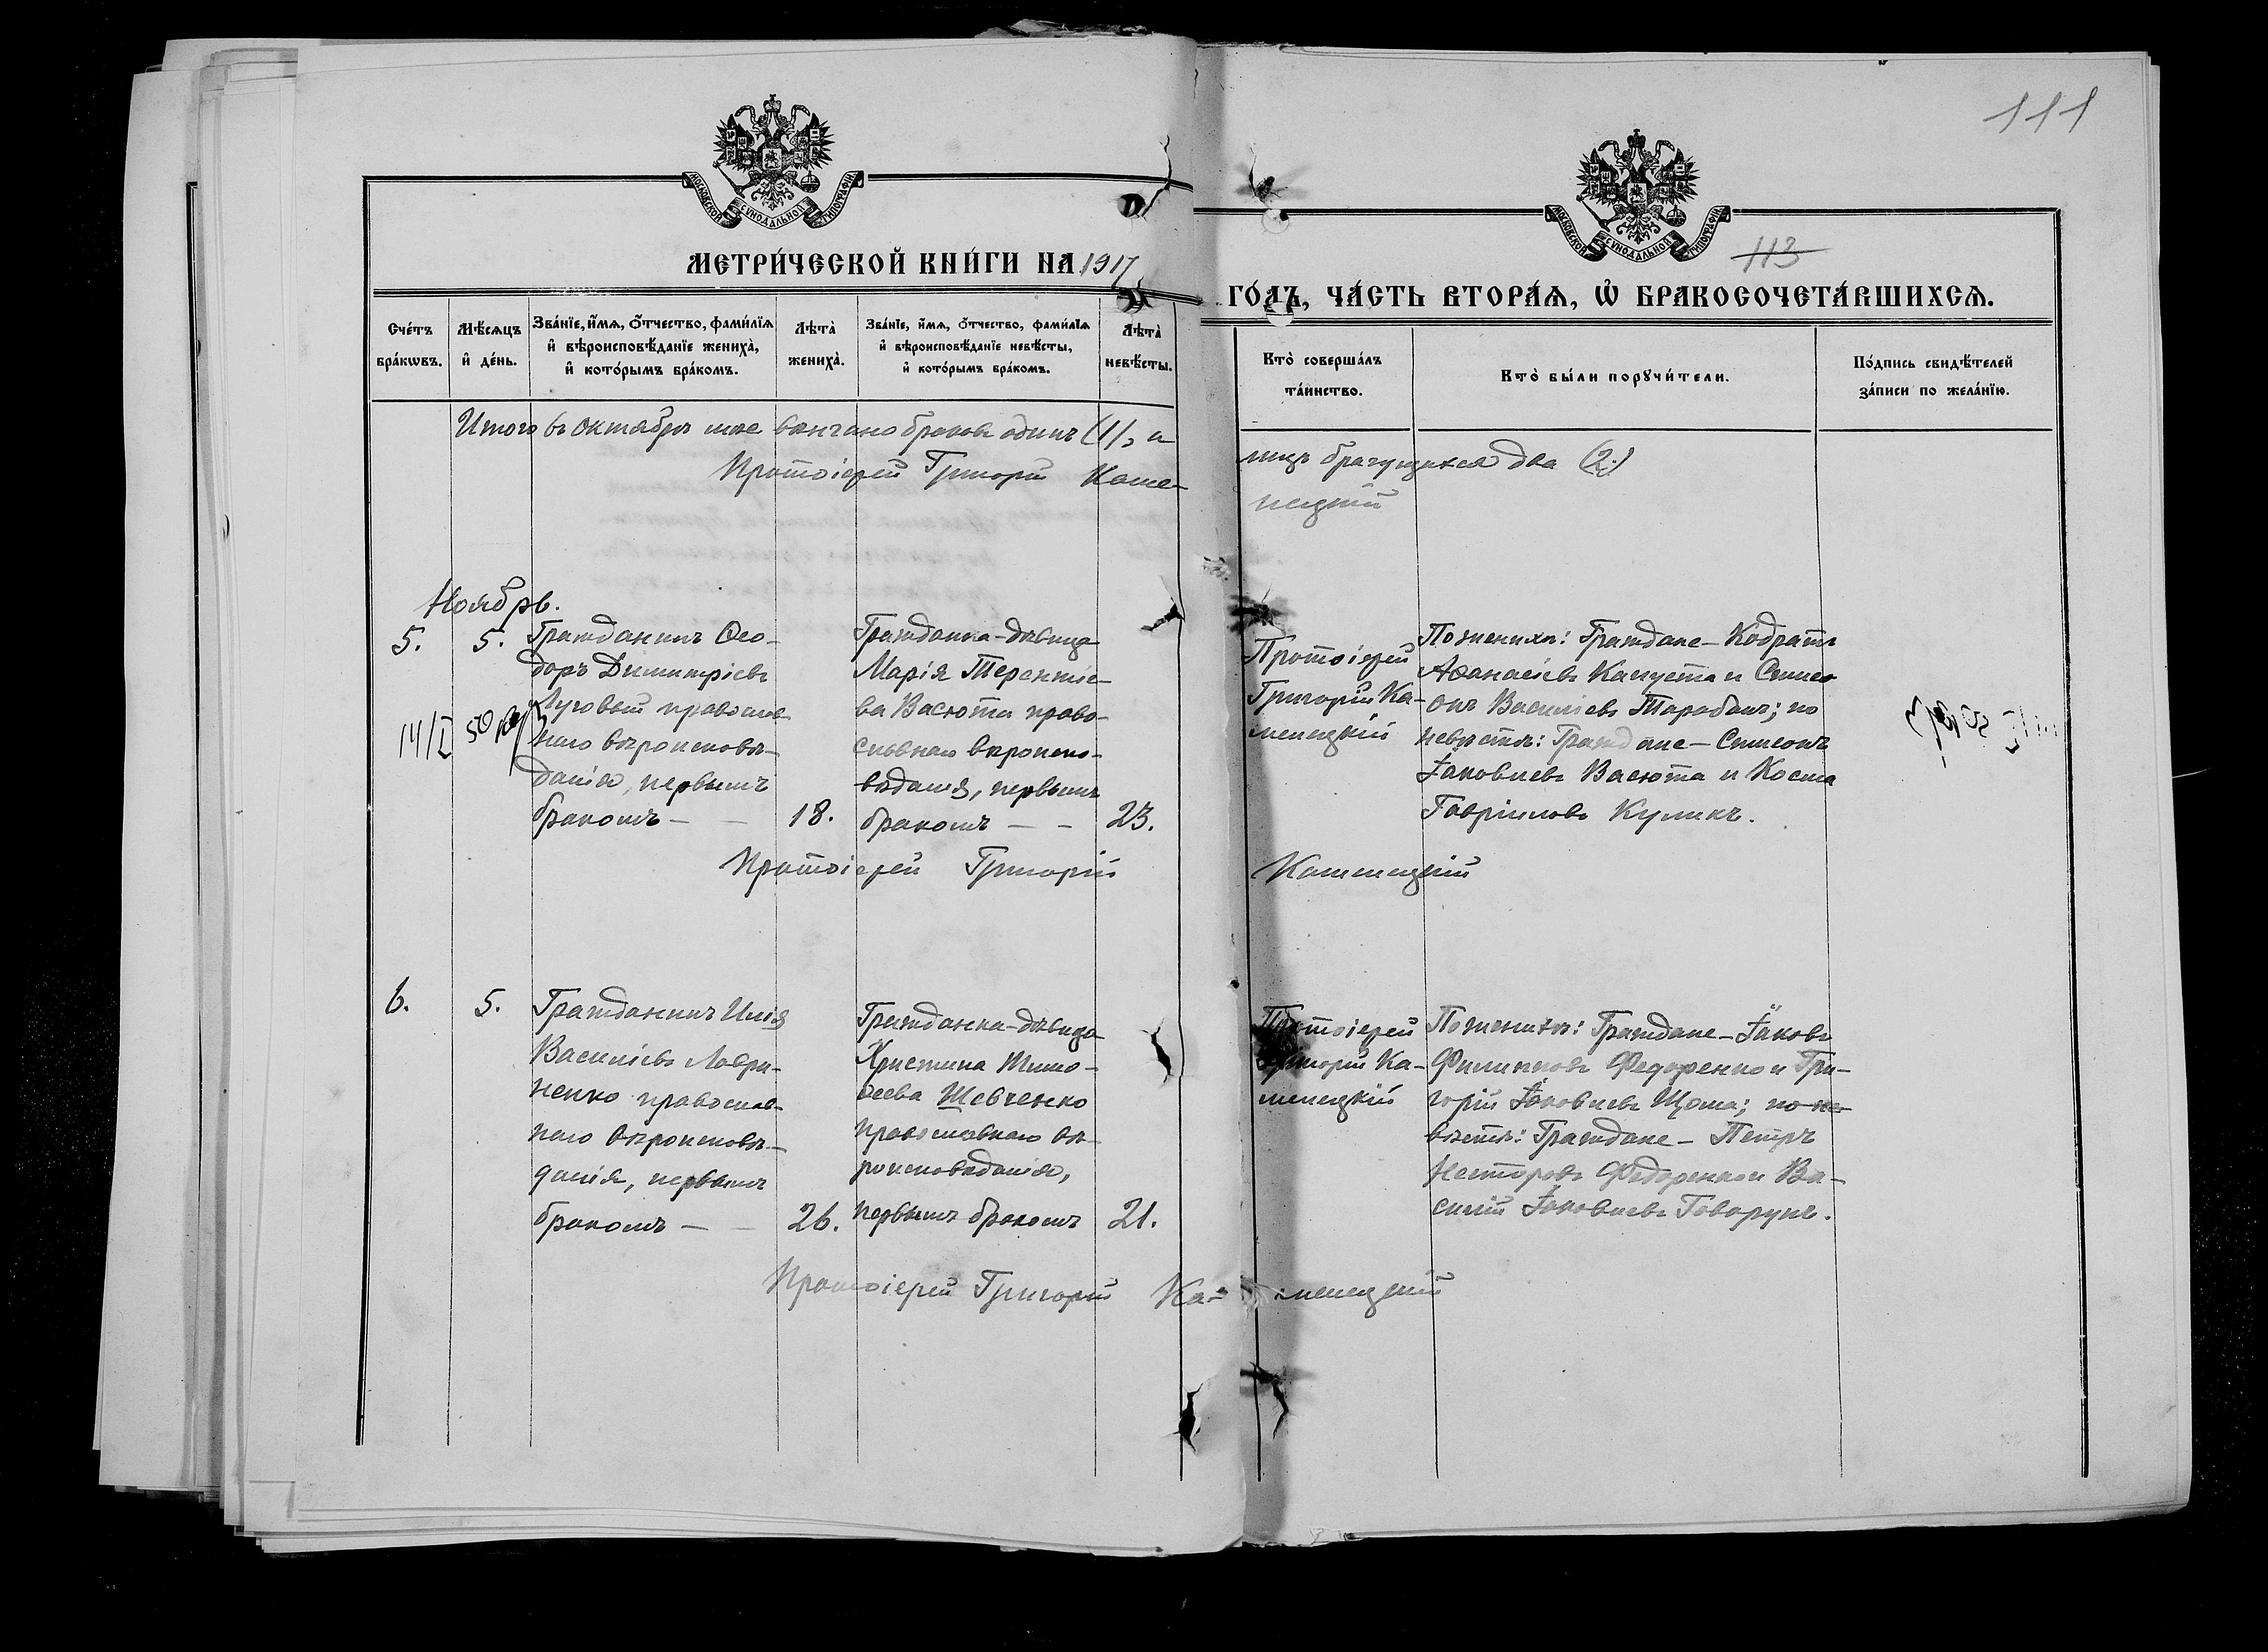 111
МОСКОВСКОЙ СѴНОДАЛЬНОЙ ТИПОГРАФІИ
МОСКОВСКОЙ СѴНОДАЛЬНОЙ ТИПОГРАФІИ
113
МЕТРИ́ЧЕСКОЙ КНИ́ГИ НА 1917
ГО́ДЪ, ЧА́СТЬ ВТОРА́Я, Ѡ БРАКОСОЧЕТА́ВШИХСЯ.
Сче́тъ бра́кѡвъ.
Мѣ́сяцъ и де́нь.
Зва́нїе, и́мя, о́тчество, фами́лїя и вѣроисповѣ́данїе жениха̀, и кото́рымъ бра́комъ.
Лѣта̀ жениха̀.
Зва́нїе, и́мя, о́тчество, фами́лїя и вѣроисповѣ́данїе невѣ́сты, и кото́рымъ бра́комъ.
Лѣта̀ невѣ́сты.
Кто̀ соверша́лъ та́инство.
Кто̀ бы́ли порꙋчи́тели.
По́дпись свидѣ́телей за́писи по жела́нїю.
Итого въ октябрѣ м-цѣ вѣнчано браковъ одинъ (1), а
лицъ брачущихся два (2)
Протоіерей Григорій Каме-
нецкій
Ноябрь.
5.
5.
14/I
Гражданинъ Ѳео-
доръ Димитріевъ
Луговый православ-
наго вѣроисповѣ-
данія, первымъ
бракомъ — —
18.
Гражданка-дѣвица
Марія Терентіе-
ва Васюта право-
славнаго вѣроиспо-
вѣданія, первымъ
бракомъ — —
23.
Протоіерей
Григорій Ка-
менецкій
По женихѣ: Граждане — Кодратъ
Аѳанасіевъ Капуста и Симе-
онъ Василіевъ Тарабанъ; по
невѣстѣ: Граждане — Симеонъ
Іаковлевъ Васюта и Косма
Гавріиловъ Куликъ.
Протоіерей Григорій
Каменецкій
6.
5.
Гражданинъ Илія
Василіевъ Лаври-
ненко православ-
наго вѣроисповѣ-
данія, первымъ
бракомъ — —
26.
Гражданка-дѣвица
Христина Тимо-
ѳеева Шевченко
православнаго вѣ-
роисповѣданія,
первымъ бракомъ
21.
Протоіерей
Григорій Ка-
менецкій
По женихѣ: Граждане — Іаковъ
Филипповъ Федоренко и Гри-
горій Іаковлевъ Щома; по не-
вѣстѣ: Граждане — Петръ
Несторовъ Федоренко и Ва-
силій Іаковлевъ Говорунъ.
Протоіерей Григорій Ка-
менецкій